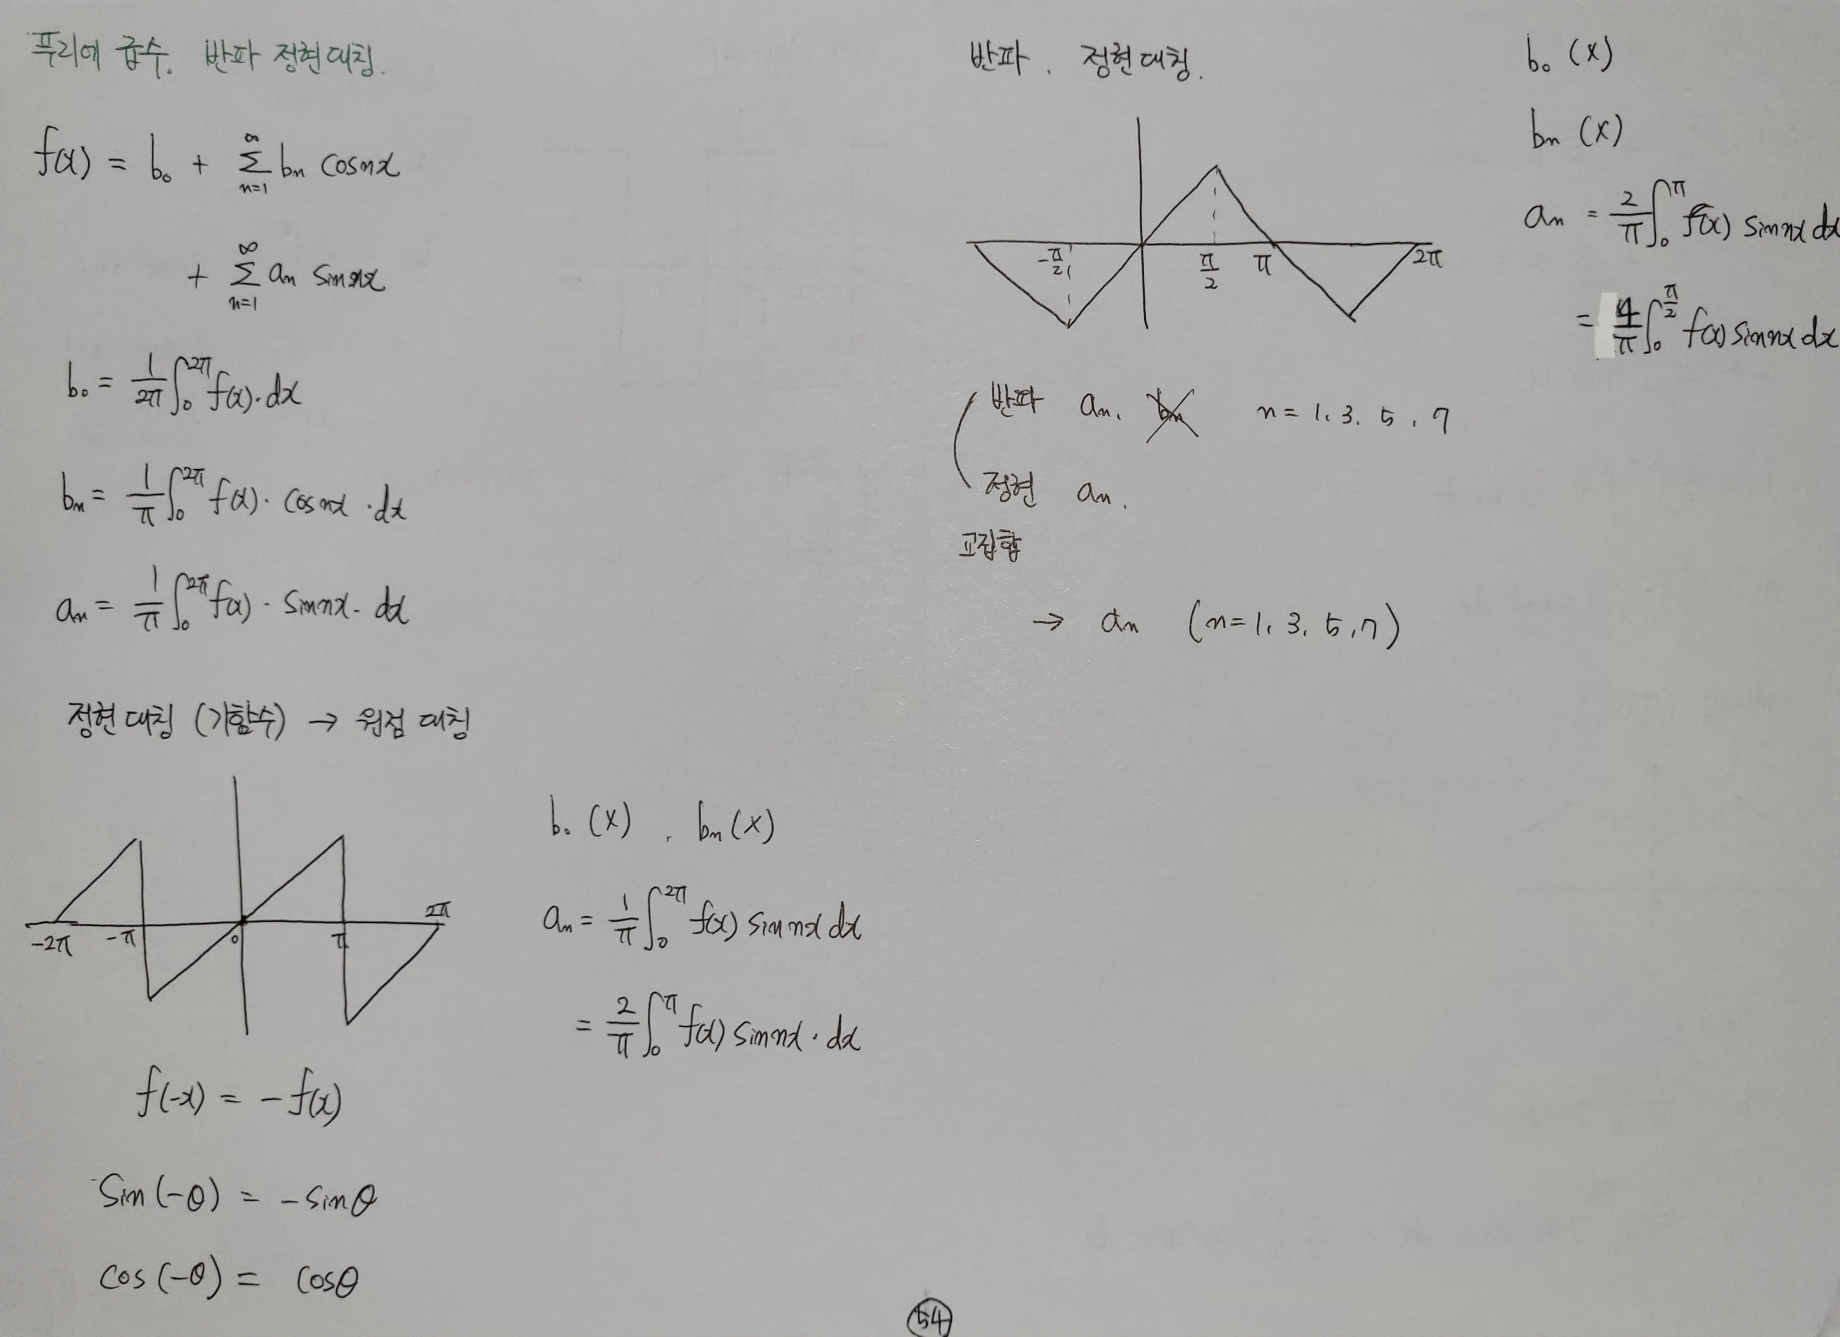 푸리에 급수. 반파 정현대칭.
f(x) = b₀ + ∞Σn=1 bn cosnx
+ ∞Σn=1 an sinnx
b₀ = 1/2π ∫₀^2π f(x)·dx
bn = 1/π ∫₀^2π f(x)· cosnx ·dx
an = 1/π ∫₀^2π f(x) · sinnx · dx
정현대칭 (기함수) → 원점 대칭
-2π -π 0 π 2π
f(-x) = - f(x)
Sin(-θ) = - sinθ
cos(-θ) = cosθ
b₀ (X) , bn (X)
an = 1/π ∫₀^2π f(x) sinnx dx
= 2/π ∫₀^π f(x) sinnx · dx
반파 . 정현대칭.
-π/2 π/2 π 2π
반파 an, bn n = 1, 3, 5, 7
정현 an,
교집합
→ an (n=1, 3, 5, 7)
b₀ (X)
bn (X)
an = 2/π ∫₀^π f(x) sinnx dx
= 4/π ∫₀^π/2 f(x) sinnx dx
54